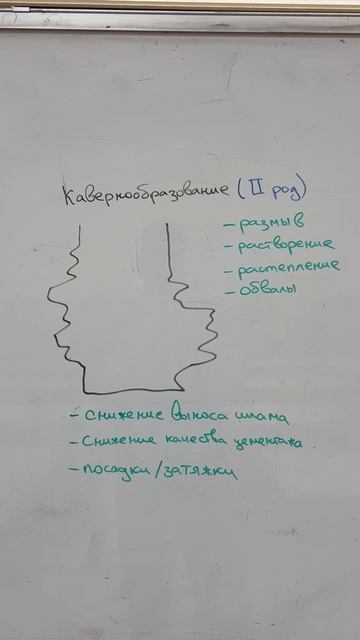 Кавернообразование (II род)
- размыв
- растворение
- растепление
- обвалы
- снижение выноса шлама
- снижение качества цементажа
- посадки/затяжки